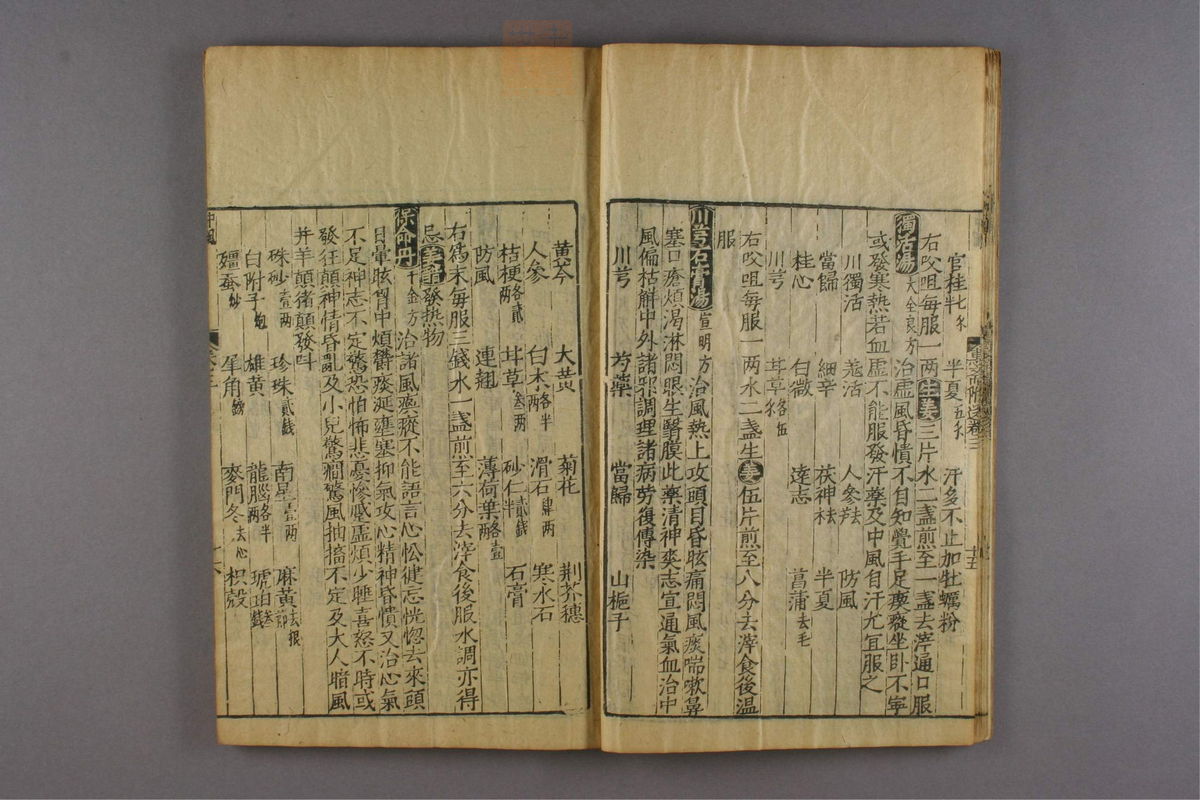 官桂七半 半夏五 汗多不止加牡蠣粉
右㕮咀每服一两生姜三片水二盞煎至一盞去滓通口服
獨活湯大全良方 治虛風昏憒不自知覺手足瘈瘲坐卧不寧
或發寒熱若血虛不能服發汗藥及中風自汗尤宜服之
川獨活 羗活 人參 防風
當歸 細辛 茯神 半夏
桂心 白薇 遠志 菖蒲去毛
川芎 甘草各伍
右㕮咀每服一两水二盞生姜伍片煎至八分去滓食後温
服
川芎石膏湯宣明方 治風熱上攻頭目昏眩痛悶風痰喘嗽鼻
塞口瘡煩渴淋悶眼生翳膜此藥清神爽志宣通氣血治中
風偏枯觧中外諸邪調理諸病劳復傳染
川芎 芍藥 當歸 山梔子
黄芩 大黄 菊花 荆芥穗
人參 白术各半两 滑石肆两 寒水石
桔梗各貳两 甘草叁两 砂仁貳錢半 石膏
防風 連翹 薄荷葉各壹两
右爲末每服三錢水一盞煎至六分去滓食後服水調亦得
忌姜醋發热物
保命丹千金方 治諸風瘈瘲不能語言心忪健忘恍惚去來頭
目暈眩胷中煩欝痰涎壅塞抑氣攻心精神昏憒又治心氣
不足神志不定驚恐怕怖悲憂慘慼虛煩少睡喜怒不時或
發狂顛神情昏亂及小兒驚癎驚風抽搐不定及大人暗風
并羊顛猪顛發呌
硃砂壹两 珍珠貳錢 南星壹两 麻黄去根
白附子炮 雄黄 龍腦各半两 琥珀叁錢
殭蚕炒 犀角 麥門冬去心 枳殼
中風